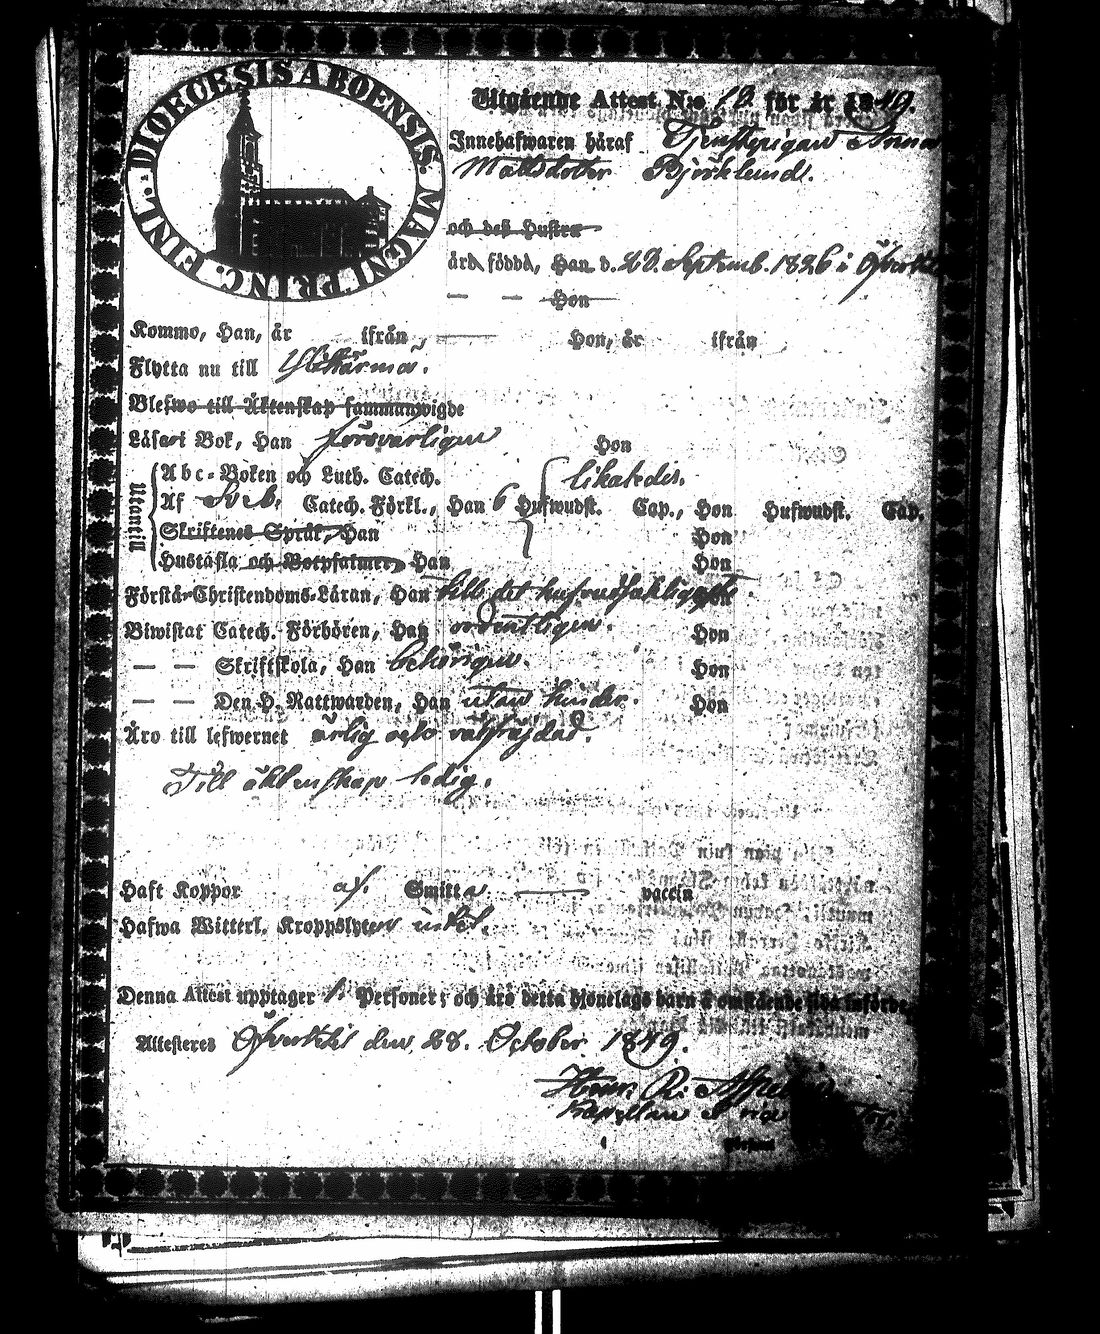 DIOECESIS ABOENSIS. MAGNI PRINC. FINL.
Utgående Attest, N:o 18 för år 1849.
Innehafwaren häraf Tjenstepigan Anna
Mattsdotter Björklund.
och deß Hustru
ärä födda, Han d. 28 Septemb. 1826 i
— — Hon
Kommo, Han, år ifrån, Hon, år ifrån
Flytta nu till Ylihärmä.
Blefwo till Äktenskap sammanwigde
Läsari Bok, Han försvarligen Hon
Utantill
Abc-Boken och Luth. Catech. likaledes.
Af Sveb. Catech. Förkl., Han 6 Hufwudst. Cap., Hon Hufwudst. Cap.
Skriftenes Språk, Han Hon
Hustafla och Botpsalmer, Han Hon
Förstå Christendoms-Läran, Han till det hufvudsakligaste. Hon
Biwistat Catech. Förhören, Han ordentligen. Hon
— — Skriftskola, Han behörigen. Hon
— — Den H. Nattwarden, Han utan hinder. Hon
Äro till lefwernet ärlig och välfrejdad.
Till äktenskap ledig.
Haft Koppor af. Smitta vaccin
Hafwa Witterl. Kroppslyten intet.
Denna Attest upptager 1. Personer; och äro detta hjonelags barn å omstående sida införde.
Attesteras den, 28. October 1849.
Kapellan